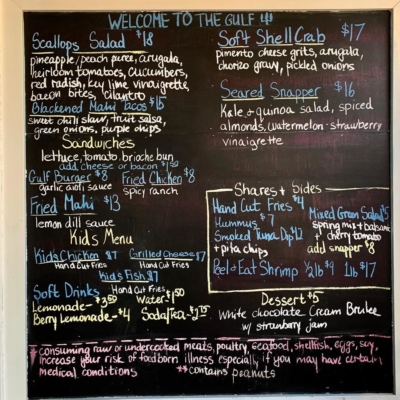 WELCOME TO THE GULF
Scallops Salad $18
pineapple/peach puree, arugala,
heirloom tomatoes, cucumbers,
red radish, key lime vinaigrette,
bacon bites, cilantro
Blackened Mahi Tacos $15
sweet chili slaw, fruit salsa,
green onions, purple chips
Sandwiches
lettuce, tomato, brioche bun
add cheese or bacon $1.50
Gulf Burger $8
garlic aioli sauce
Fried Chicken $8
spicy ranch
Fried Mahi $13
lemon dill sauce
Kids Menu
Kids Chicken $7
Hand Cut Fries
Grilled Cheese $7
Hand Cut Fries
Kids Fish $7
Hand Cut Fries
Soft Drinks
Lemonade - $3.50
Water - $1.50
Berry Lemonade - $4
Soda/Tea - $1.75
Soft Shell Crab $17
pimento cheese grits, arugala,
chorizo gravy, pickled onions
Seared Snapper $16
Kale + quinoa salad, spiced
almonds, watermelon-strawberry
vinaigrette
Shares + Sides
Hand Cut Fries $4
Hummus $7
Smoked Tuna Dip $12
+ pita chips
Mixed Green Salad $5
spring mix + balsamic
+ cherry tomato
add snapper $8
Peel + Eat Shrimp ½lb $9 1lb $17
Dessert $5
White chocolate Cream Brulee
w/ strawberry jam
*consuming raw or undercooked meats, poultry, seafood, shellfish, eggs, soy,
increase your risk of foodborn illness especially if you may have certain
medical conditions **contains peanuts